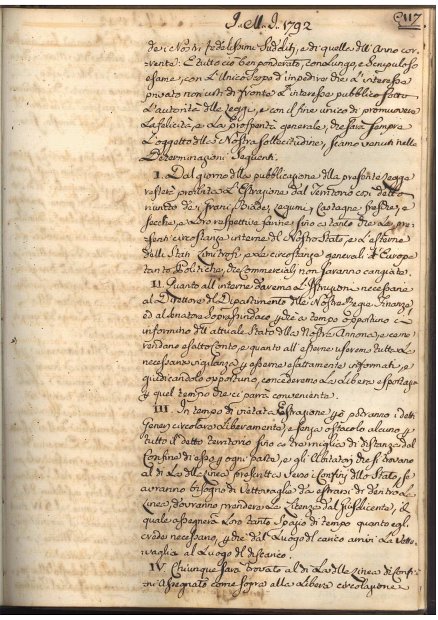 J. M. J. 1792
217
dei Nostri fedelissimi Sudditi, e di quelle dell'Anno cor
rente: E tutto ciò ben ponderato, con lungo, e scrupuloso
esame, con l'unico scopo d'impedire che l'interesse
privato non urti di fronte l'interesse pubblico sotto
L'autorità delle Leggi, e con il fine unico di promuovere
La felicità, e La prosperità generale, che sarà sempre
L'oggetto della Nostra sollecitudine, siamo venuti nelle
Determinazioni seguenti.
I. Dal giorno della pubblicazione della presente Legge
resterà proibita L'Estrazione dal Territorio
dei Grani, Biade, Legumi, Castagne fresche, e
secche, e Loro respettive farine, fino a tanto che Le pre
senti circostanze interne del Nostro Stato, e L'esterne
delli Stati limitrofi, e Le circostanze generali d'Europa
tanto Politiche, che Commerciali non saranno cangiate.
II. Quanto all'interno daremo L'Istruzioni necessarie
al Direttore del Dipartimento delle Nostre Regie Finanze,
ed al Senatore Soprasindaco, perchè a tempo opportuno c'
informino dell'attuale Stato della Nostra Annona, e ce ne
rendano esatto conto, e quanto all'esterne useremo tutta La
necessaria vigilanza per esserne esattamente informati, e
giudicandolo opportuno, concederemo La Libera esportazione
per quel tempo che ci parrà conveniente.
III. In tempo di vietata Estrazione potranno i detti
Generi circolare liberamente, e senza ostacolo alcuno per
tutto il detto territorio fino a tre miglia di distanza dal
Confine di esso per ogni parte, e gli Abitatori che si trovano
al di La della Linea presentta verso i Confini dello Stato, se
avranno bisogno di Vettovaglie da estrarsi di dentro La
Linea, dovranno prendere La Licenza dal Giusdicente, il
quale assegnerà Loro tanto spazio di tempo quanto egli
crede necessario, perchè dal Luogo del carico arrivi La Vetto
vaglia al Luogo del discarico.
IV. Chiunque sarà trovato al di La della Linea di Confi
ni assegnato come sopra alla Libera circolazione